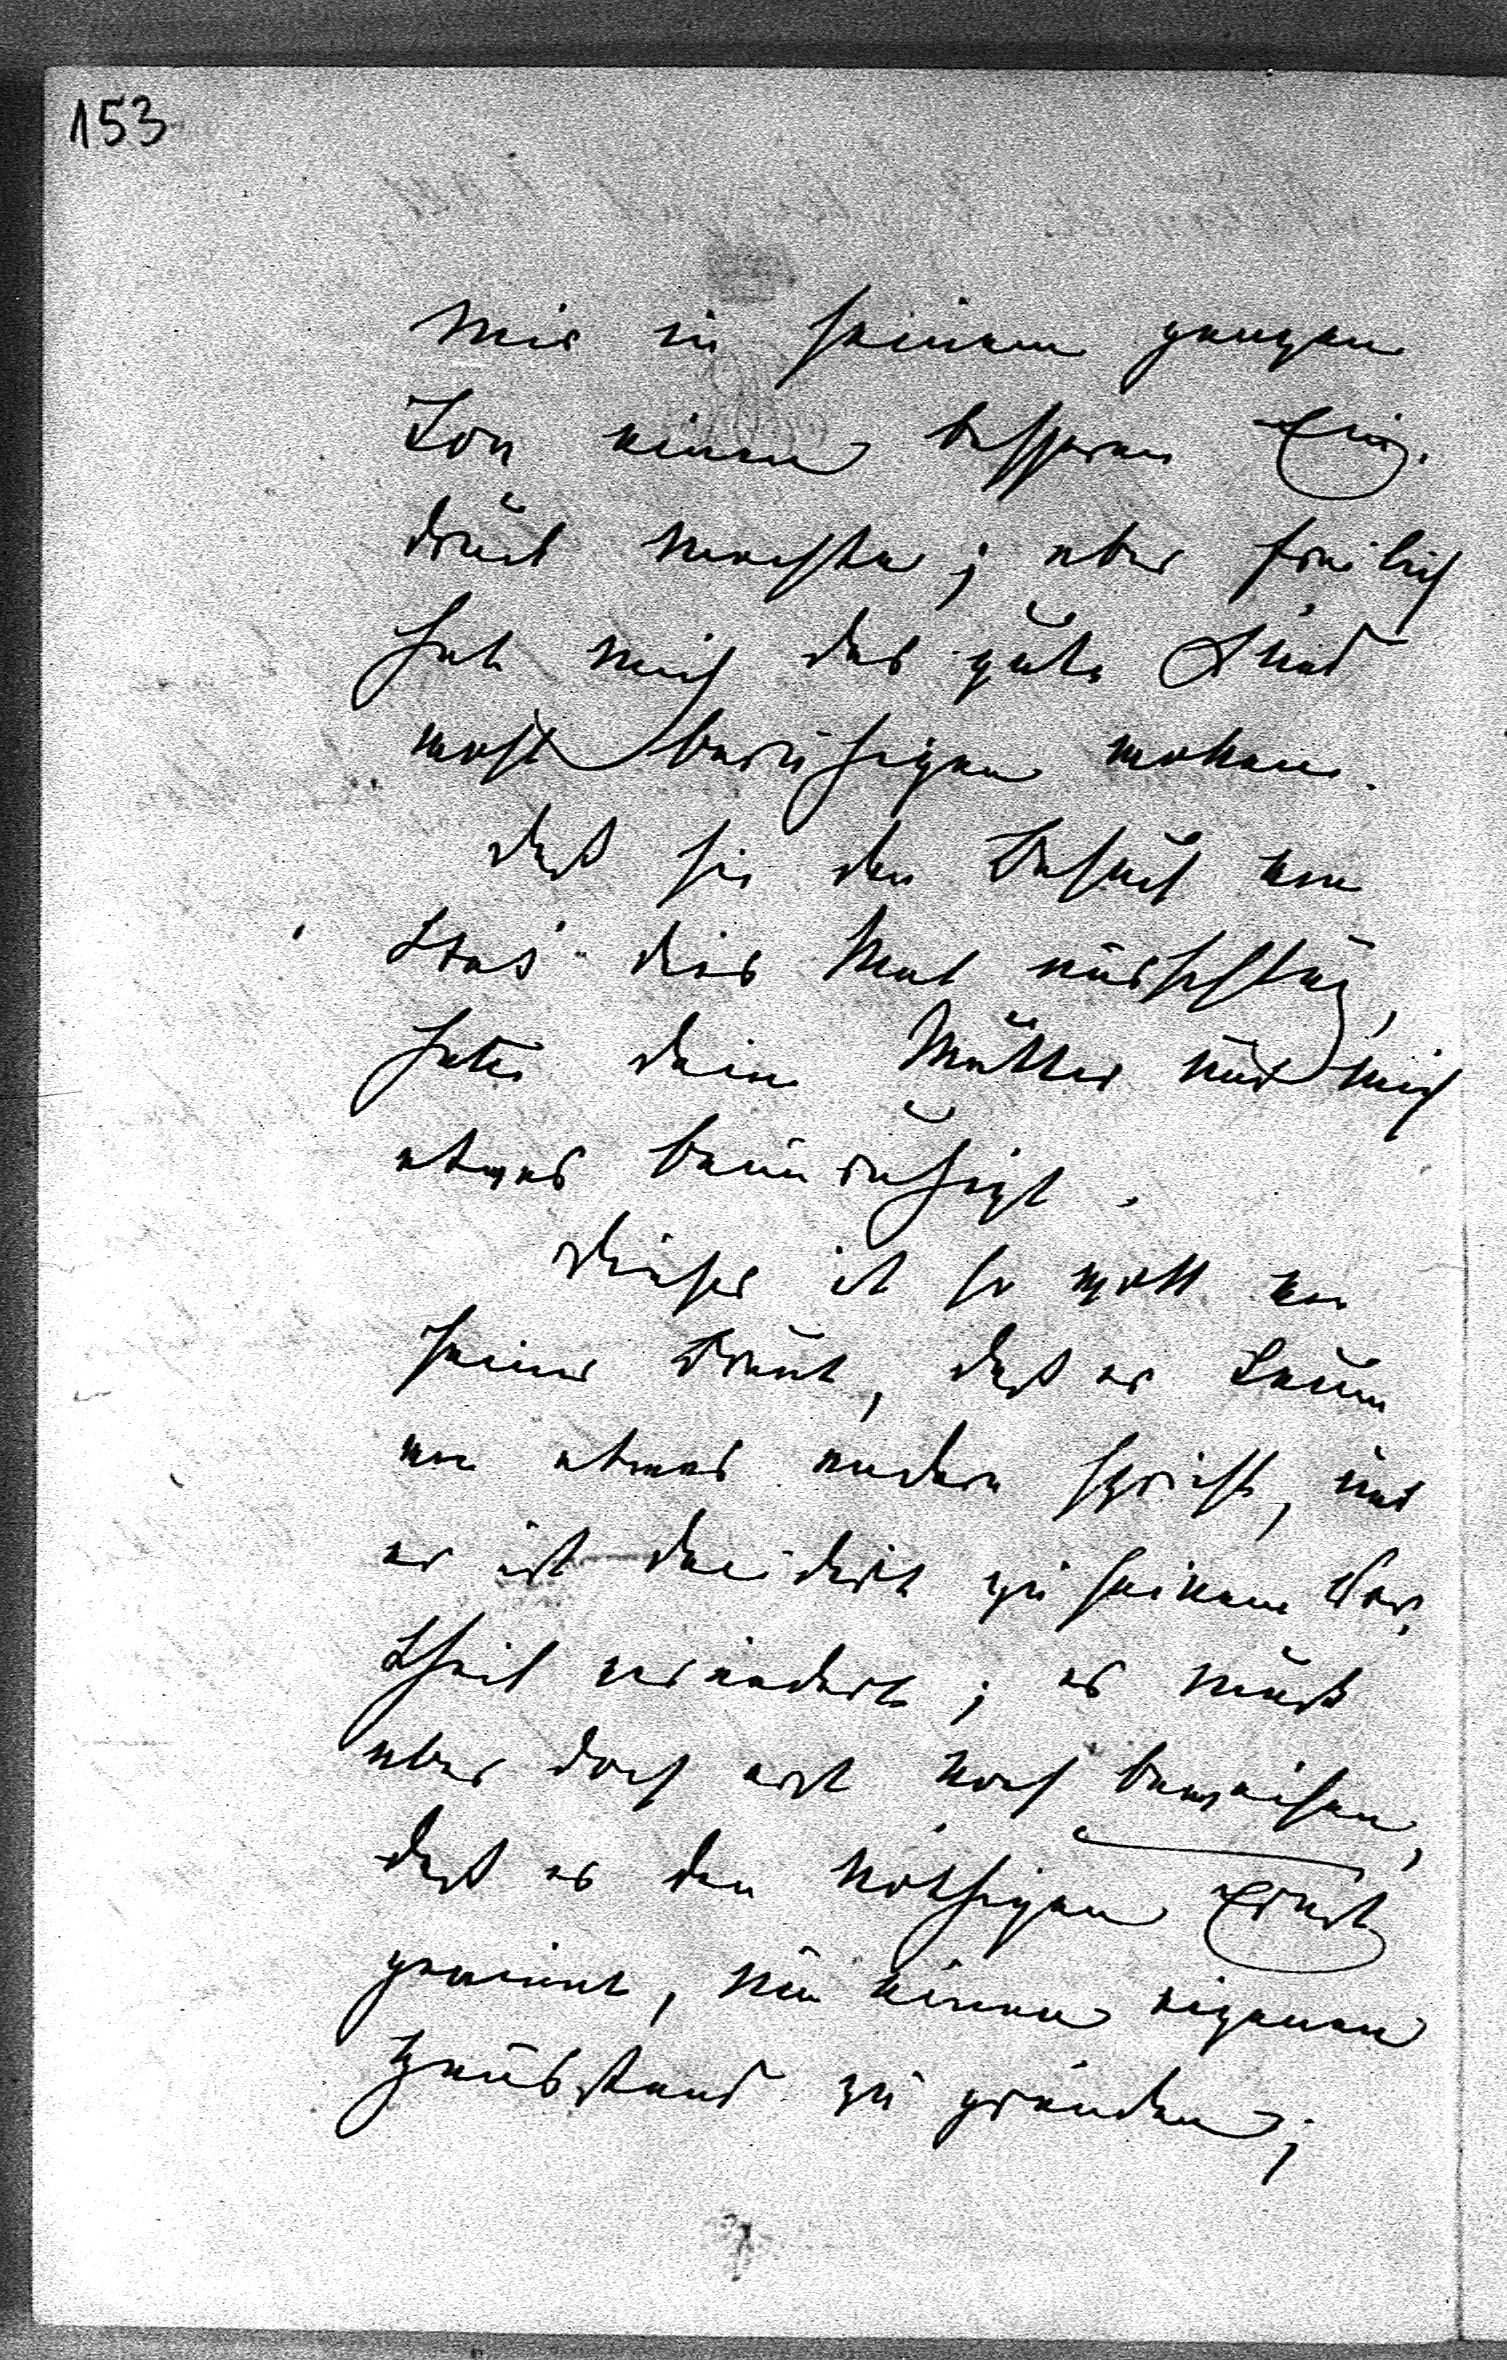 153
mir in seinem ganzen
Ton einen besseren Ein-
druck machte; aber freilich
hat mich das gute Kind
wohl beruhigen wollen.
Daß sie den Besuch von
Stas dies Mal ausschlug,
hatte deine Mutter und mich
etwas beunruhigt.
Dieser ist so voll von
seiner Braut, daß er kaum
von etwas anderm spricht, und
er ist dadurch zu seinem Vor-
theil verändert; er muß
aber doch erst noch beweisen,
daß er den nöthigen Ernst
gewinnt, um einen eigenen
Hausstand zu gründen;